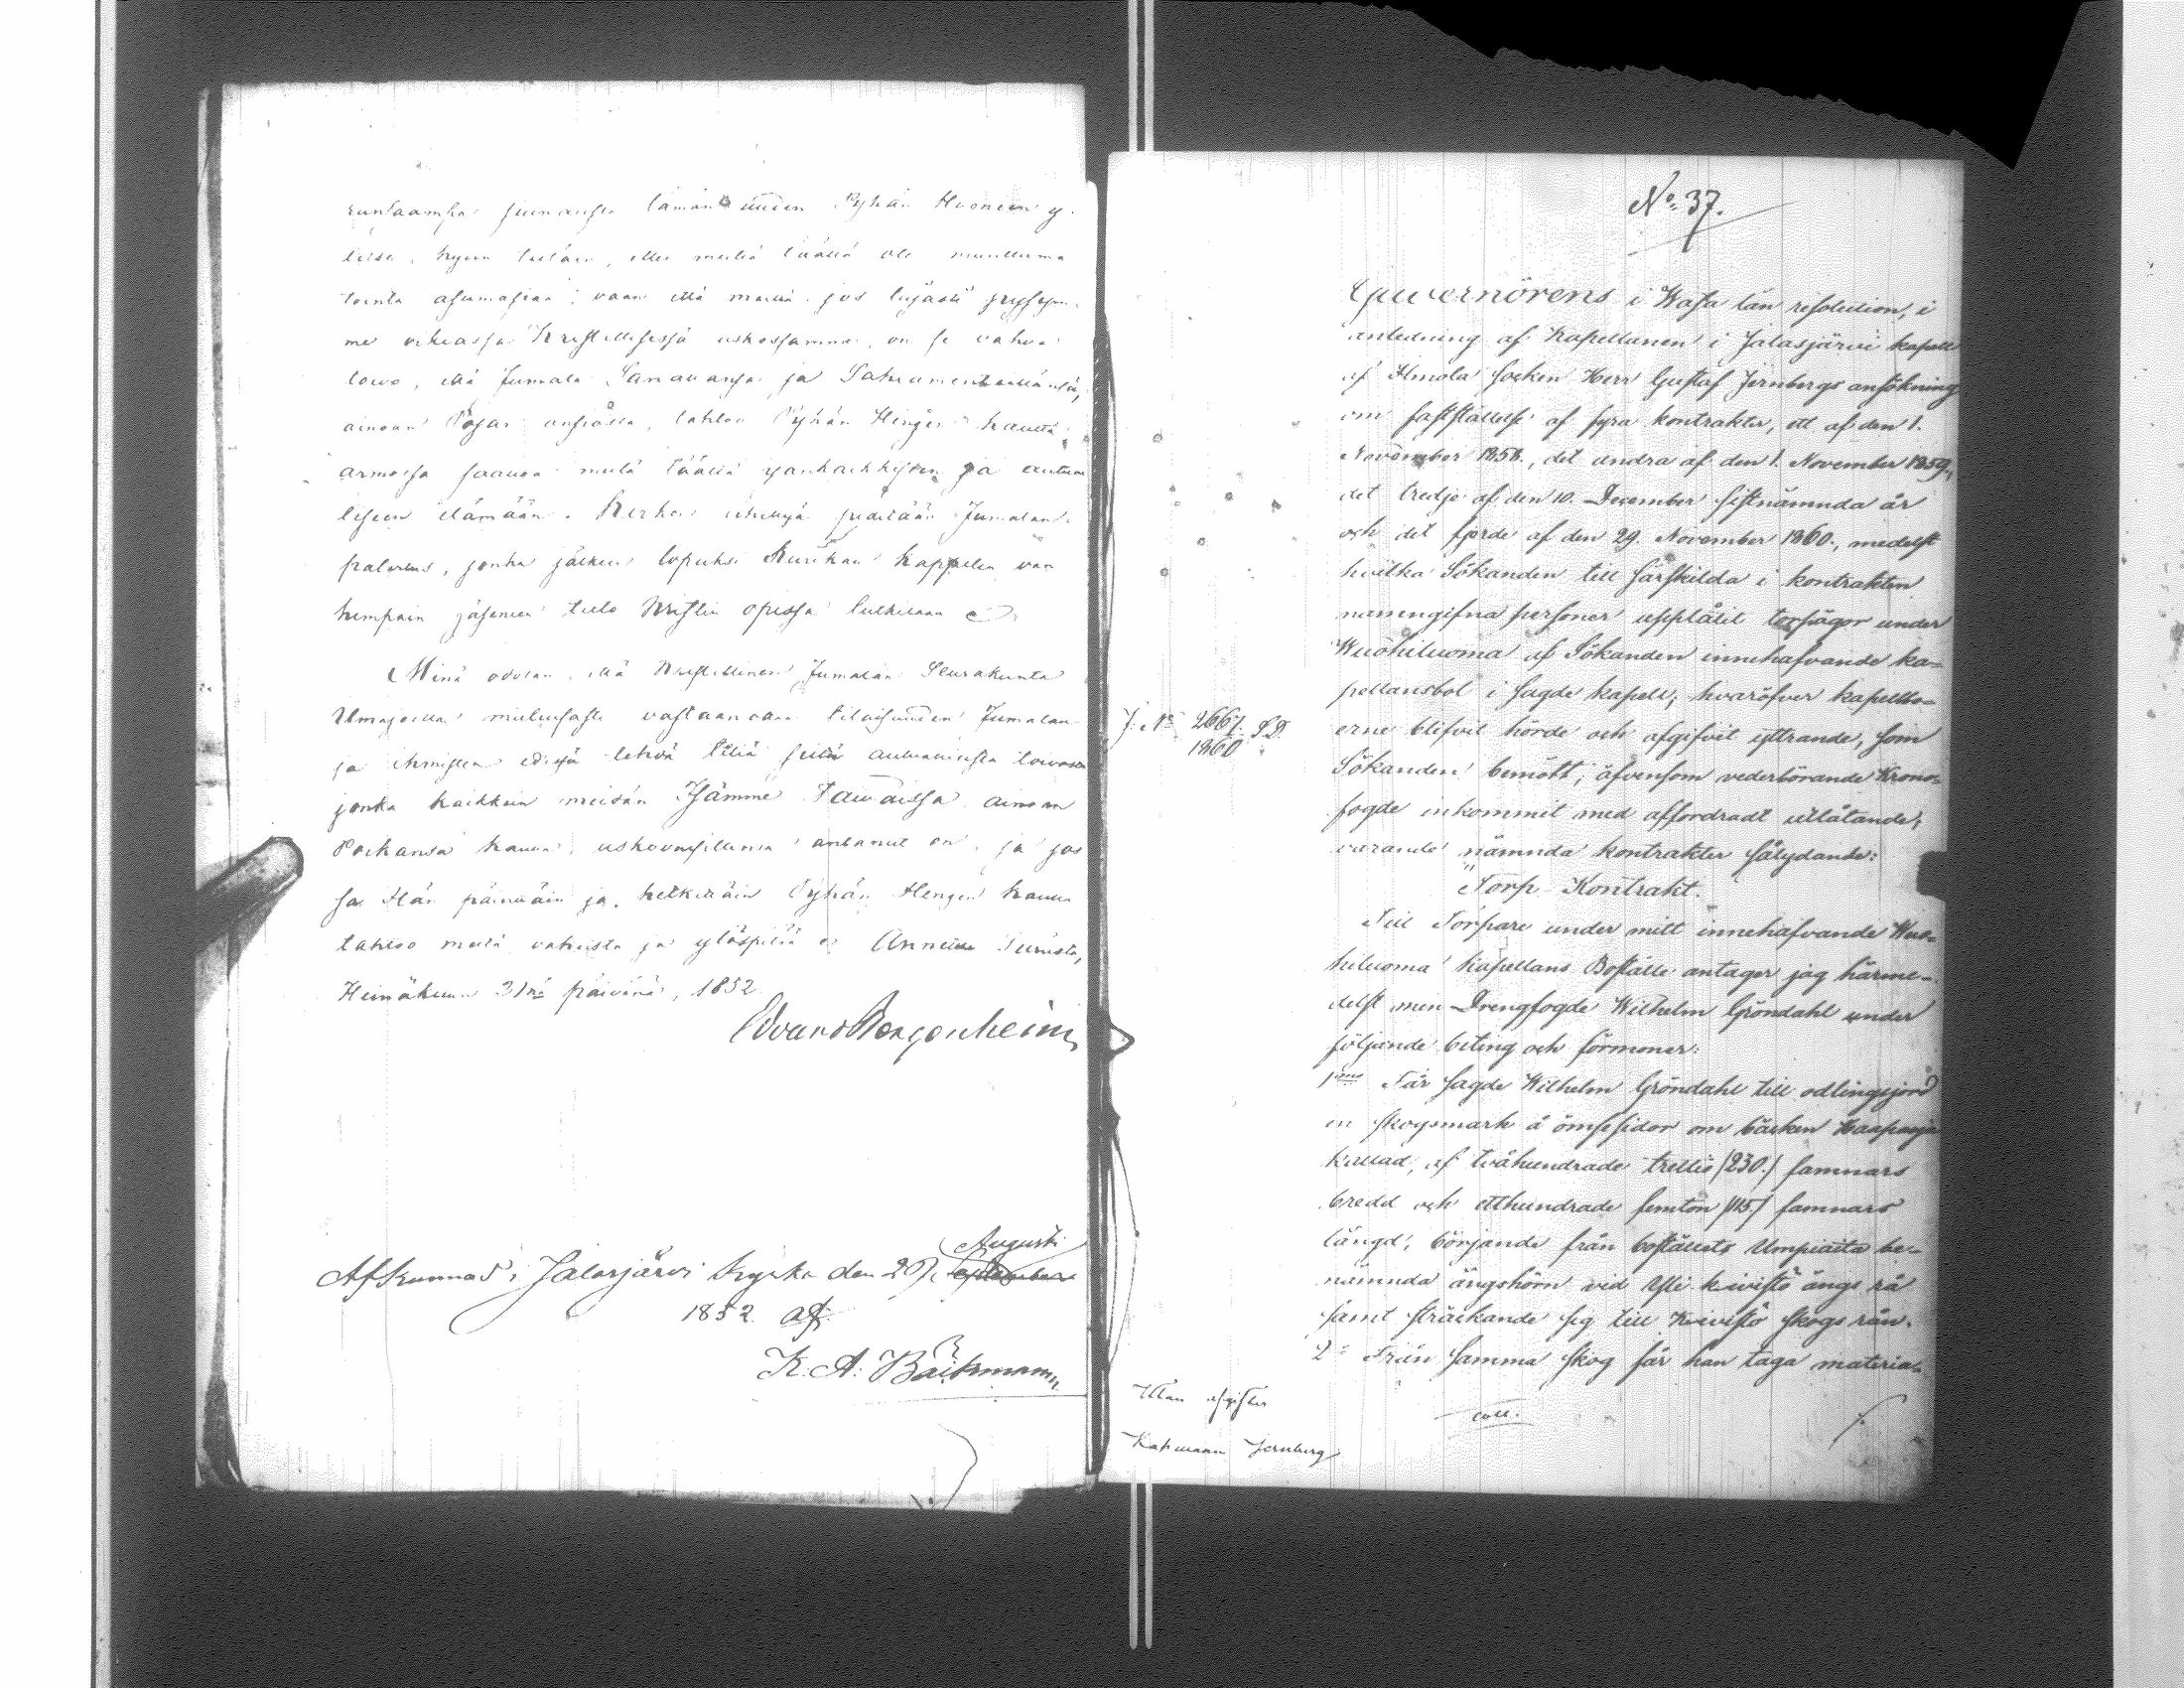 tämän uuden Pyhän Huoneen y-
täällä ole
asumasiaa; vaan että meillä jos
me oikiassa Kristillisessä uskossamme, on se vahva
toivo, että Jumala Sanallansa ja Sakramenteillänsä,
ainoan Pojan ansiolla, tahtoo Pyhän Hengen kautta
armossa saattaa meitä täällä
liseen elämään. Kirkon pidetään Jumalan
palvelus, jonka jälkeen lopuksi Kurikan kappelin van
hempain jäsenten tieto Kristin opissa tutkitaan
Minä odotan, että Kristillinen Jumalan Seurakunta
Ilmajoella mieluisasti vastaanottaa tilaisuuden Jumalan
ja ihmisten edessä tehdä tiliä siitä autuaallisesta toivosta
jonka kaikkein meidän Isämme Taivaissa ainoan
Poikansa kautta, uskovaisillensa antanut on, ja jos
sa Hän päivittäin ja hetkittäin Pyhän Hengen kautta
tahtoo meitä vahvista ja ylöspitää. Annettu Turusta,
Heinäkuun 31nä päivänä, 1852.
Edvard Bergenheim
Augusti
Afkunnad i Jalasjärvi Kyrka den 29 September
1852. af.
K. A: Bäckmann
No 37.
Guvernörens i Wasa län resolution, i
anledning af Kapellanen i Jalasjärvi kapell
af Ilmola socken Herr Gustaf Jernbergs ansökning
om fastställelse af fyra kontrakter, ett af den 1.
November 1858., det andra af den 1. November 1859,
det tredje af den 10. December sistnämnda år
och det fjerde af den 29. November 1860., medelst
hvilka Sökanden till särskilda i kontrakten
namngifna personer upplåtit torplägor under
Wuohiluoma af Sökanden innehafvande ka-
pellansbol i sagde kapell; hvaröfver kapellbo-
J. No 2667 S.D.
1860
erne blifvit hörde och afgifvit yttrande, som
Sökanden bemött; äfvensom vederbörande Krono-
fogde inkommit med affordradt utlåtande;
varande nämnda kontrakter sålydande:
"Torp Kontrakt.
Till Torpare under mitt innehafvande Wuo-
hiluoma Kapellans Boställe antager jag härme-
delst min Drengfogde Wilhelm Gröndahl under
följande beting och förmoner:
1mo Får sagde Wilhelm Gröndahl till odlingsjord
en skogsmark å ömse sidor om bäcken Haapaoja
kallad, af tvåhundrade trettio /230./ famnars
bredd och etthundrade femton /115/ famnars
längd, börjande från boställets Umpiaita be-
nämnda ängshörn vid Yli kivistö ängs rå
samt sträckande sig till Kivistö skogs rån.
2o Från samma skog får han taga materia-
Utan afgifter
coll.
Kapellan Jernberg